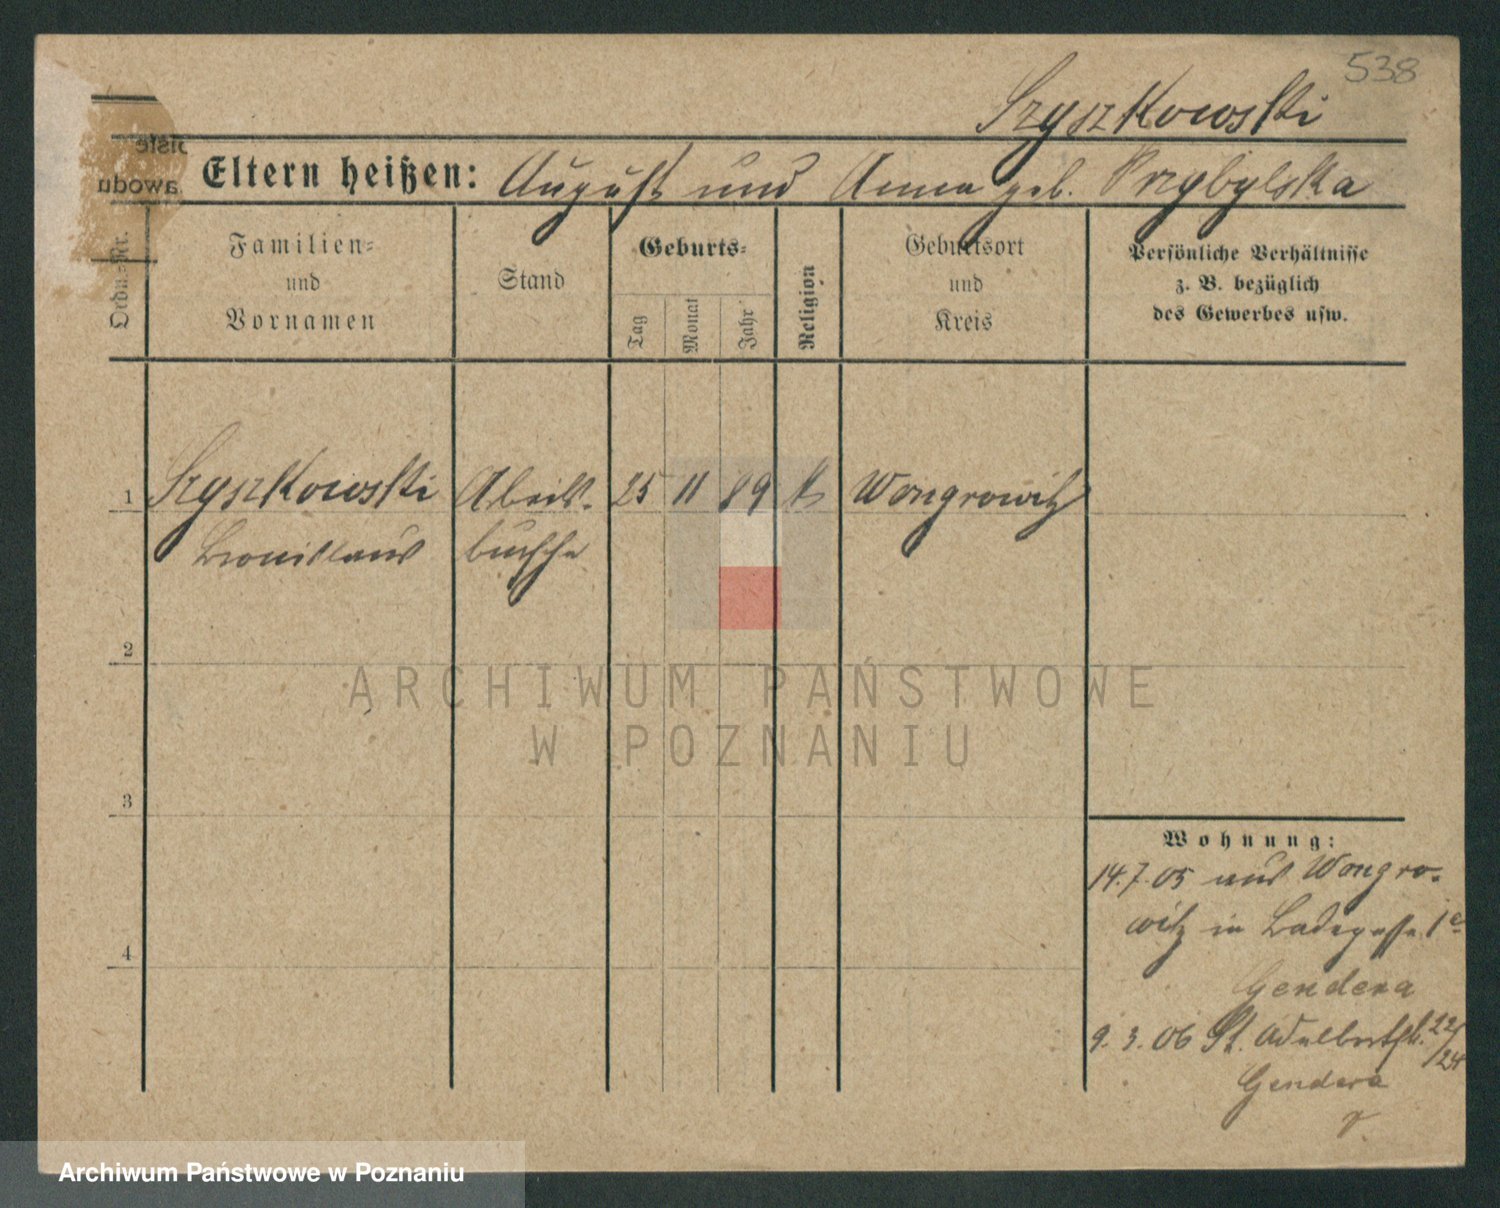 538
Szyszkowski
Eltern heißen: August und Anna geb. Przybylska
Ordn.-Nr.
Familien-
und
Vornamen
Stand
Geburts-
Tag
Monat
Jahr
Religion
Geburtsort
und
Kreis
Persönliche Verhältnisse
z. B. bezüglich
des Gewerbes usw.
1 Szyszkowski Arbeits- 25 11 89 k Wongrowitz
Bronislaus
2
3
4
Wohnung:
14.7.05 aus Wongro-
witz in Badegasse 1
Gendera
9.3.06 St. Adalbertstr. 22/
/24
Gendera
ARCHIWUM PAŃSTWOWE
W POZNANIU
Archiwum Państwowe w Poznaniu